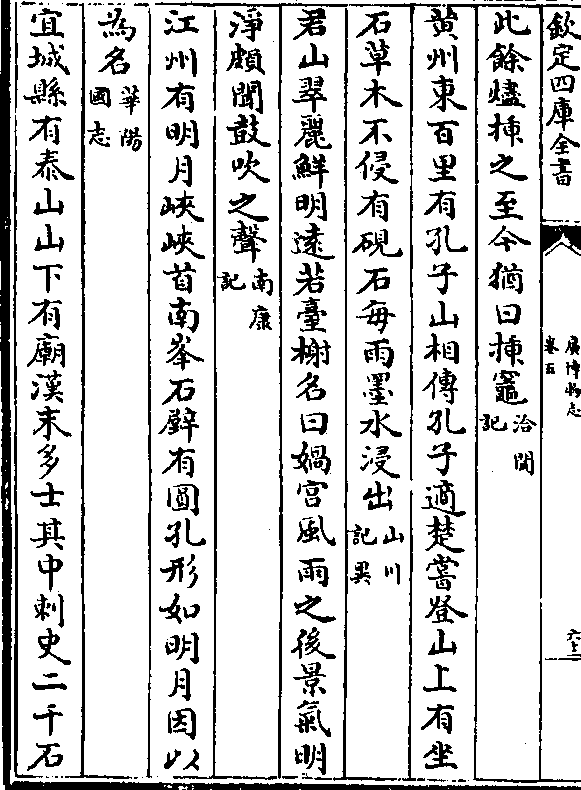 欽定四庫全書
廣博物志
卷五
六十二
此餘燼揷之至今猶曰揷竈洽聞記
黄州東百里有孔子山相傳孔子適楚嘗登山上有坐
石草木不侵有硯石毎雨墨水浸出山川記異
君山翠麗鮮明遠若臺榭名曰媧宫風雨之後景氣明
淨頗聞鼓吹之聲南康記
江州有明月峽峽首南峯石壁有圓孔形如明月因以
為名華陽國志
宜城縣有泰山山下有廟漢末多士其中刺史二千石